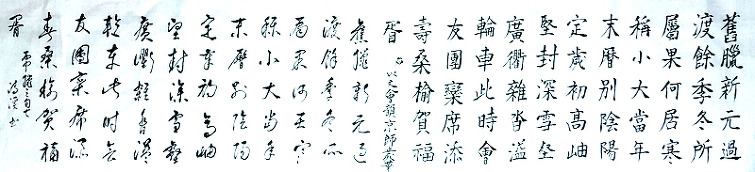 舊臘新元過
渡餘季冬所
屬果何居寒
稱小大當年
末曆別陰陽
定歲初高岫
堅封深雪坌
廣衢雜沓溢
輪車此時會
友團欒席添
壽桑榆賀福
胥
以文會
京師
舊臘新元過
渡餘季冬所
屬果何居寒
稱小大當年
末曆別陰陽
定歲初高岫
堅封深雪坌
廣衢雜沓溢
輪車此時會
友團欒席添
壽桑榆賀福
胥